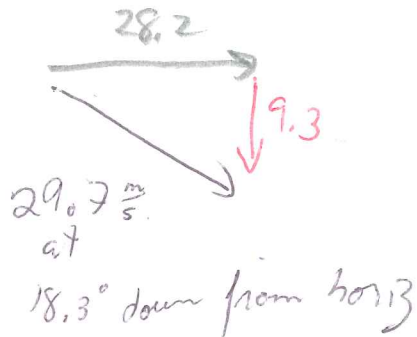 28.2
9.3
29.7 m/s
at
18.3° down from horiz